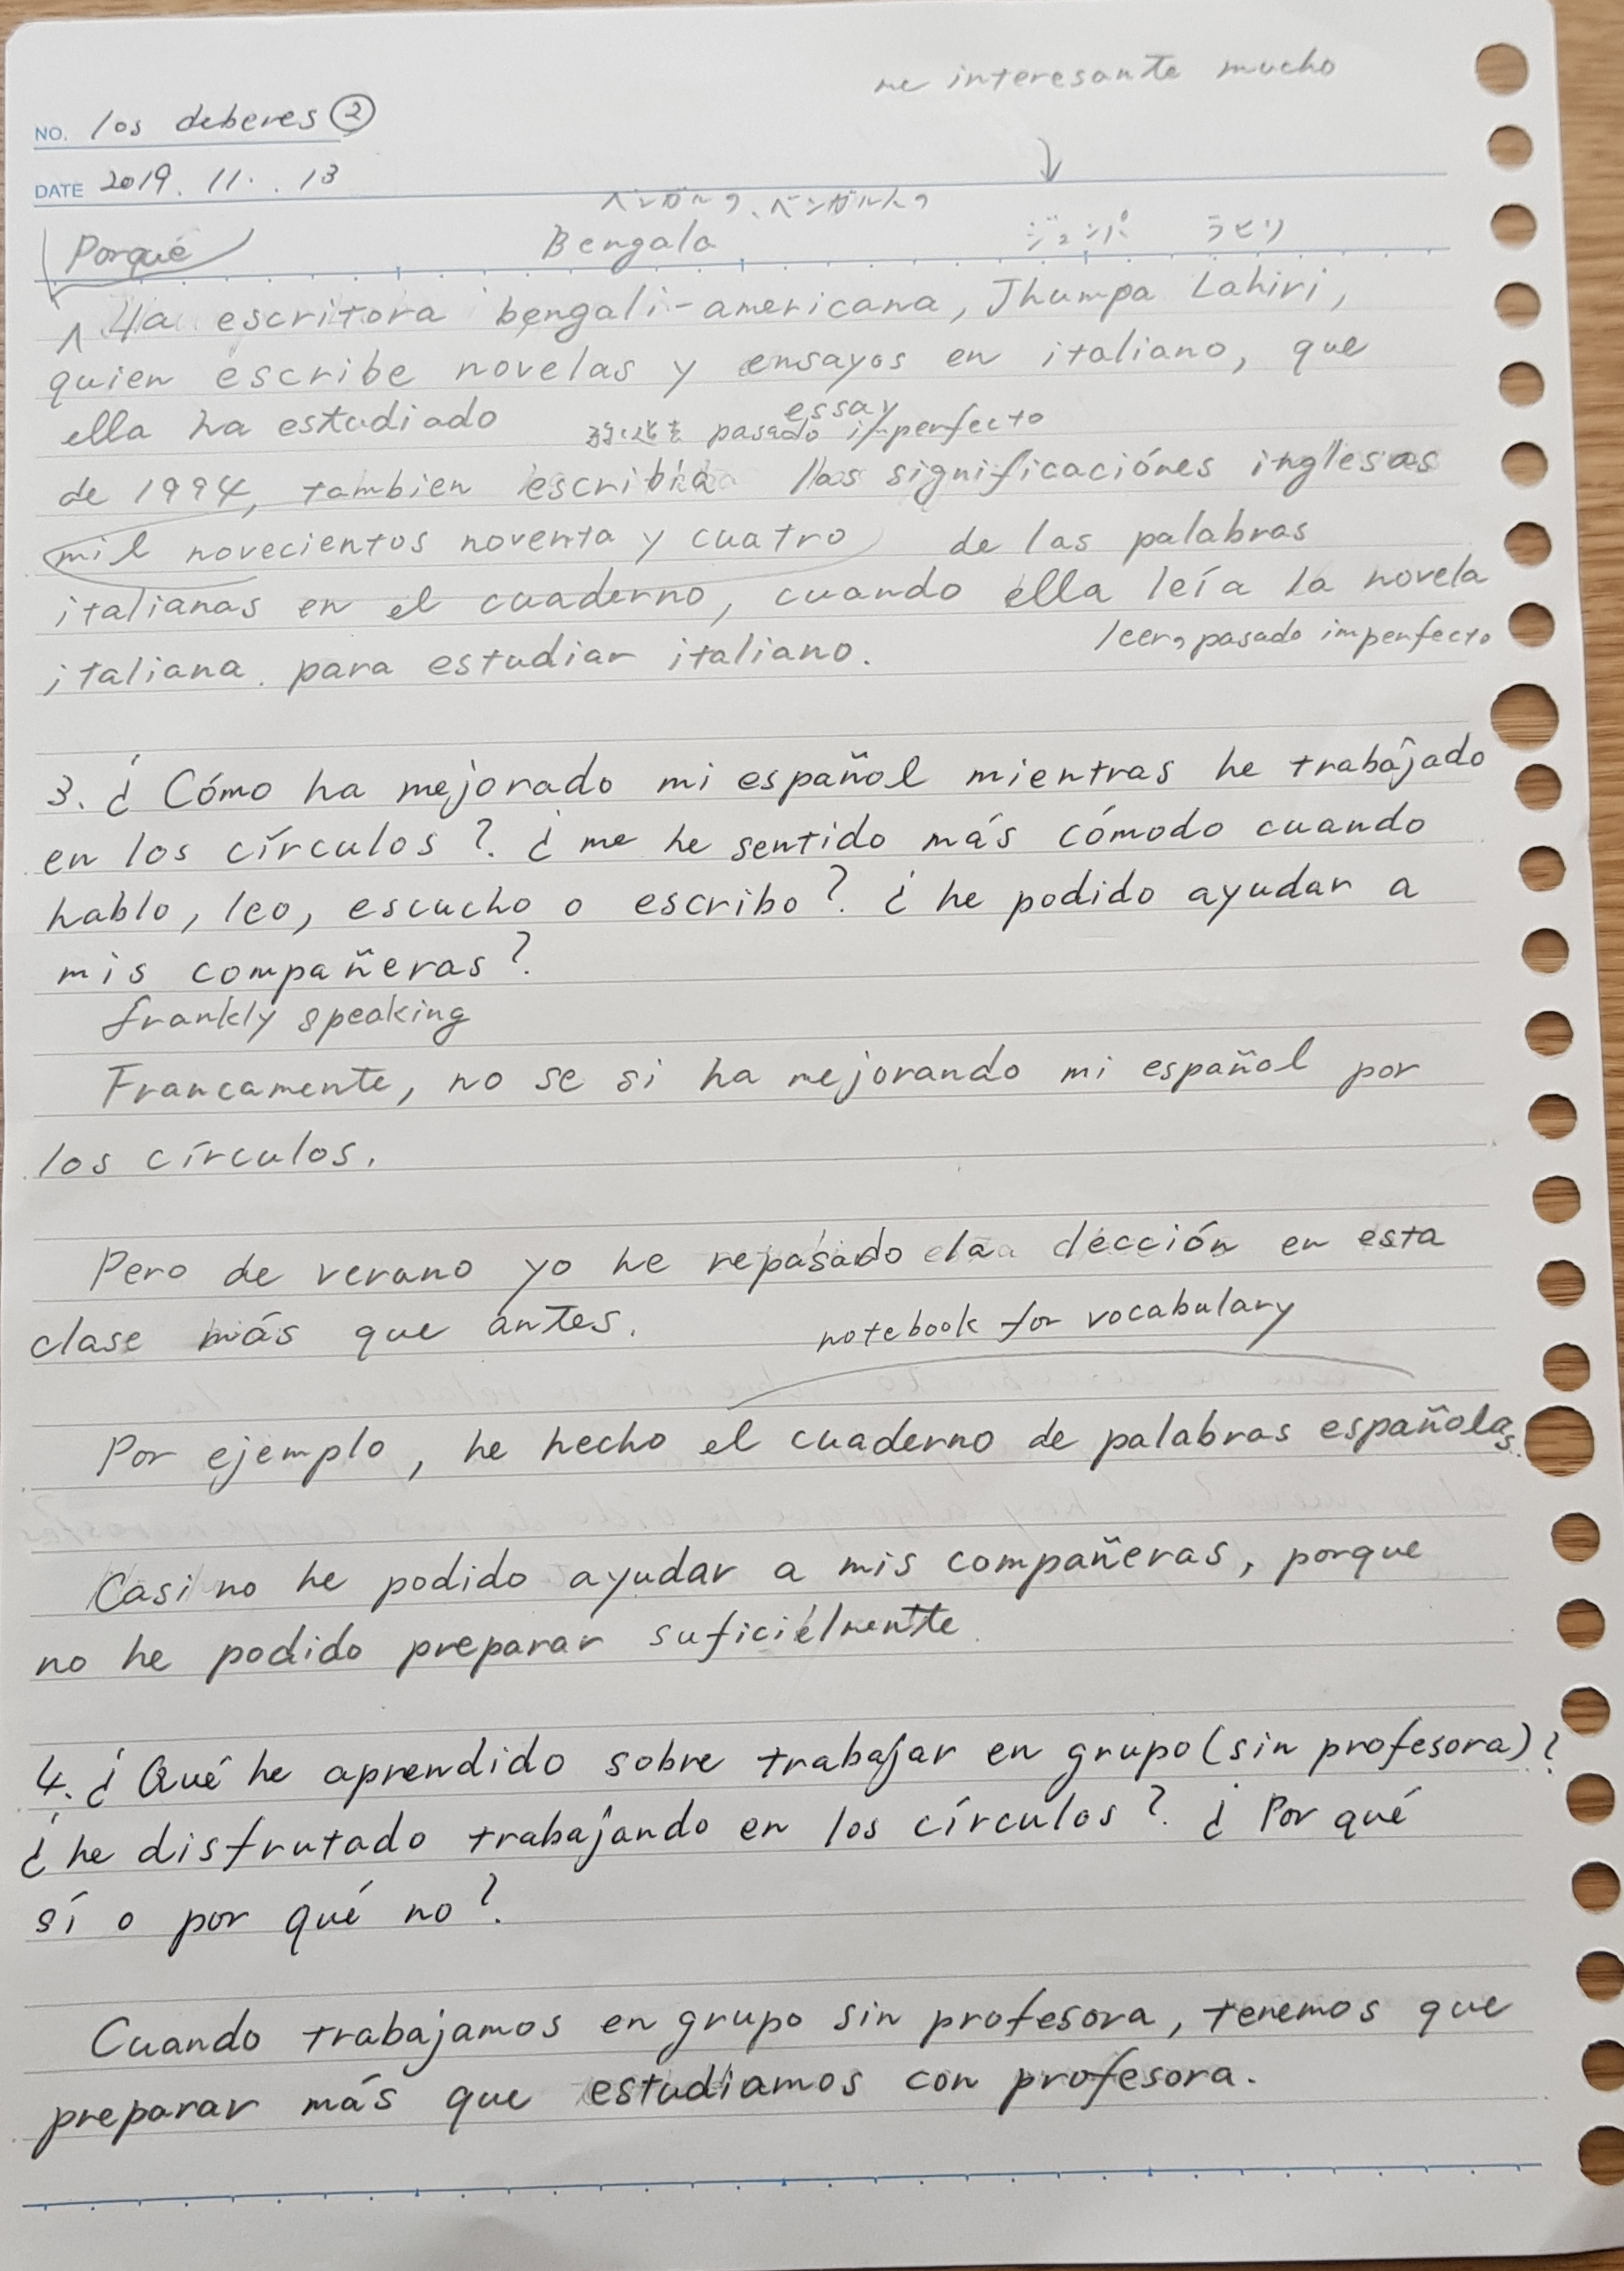 me interesante mucho
NO. los deberes ②
↓
DATE 2019. 11. . 13
ベンガルの、ベンガル人の
Porqué Bengala ジュンパ ラヒリ
la escritora bengali-americana, Jhumpa Lahiri,
quien escribe novelas y ensayos en italiano, que
essay
ella ha estudiado pasado imperfecto
de 1994, tambien escribía las significaciónes inglesas
mil novecientos noventa y cuatro de las palabras
italianas en el cuaderno, cuando ella leía la novela
leer, pasado imperfecto
italiana para estudiar italiano.
3. ¿Cómo ha mejorado mi español mientras he trabajado
en los círculos? ¿me he sentido más cómodo cuando
hablo, leo, escucho o escribo? ¿he podido ayudar a
mis compañeras?
frankly speaking
Francamente, no se si ha mejorando mi español por
los círculos.
Pero de verano yo he repasado la lección en esta
clase más que antes.
notebook for vocabulary
Por ejemplo, he hecho el cuaderno de palabras españolas.
Casi no he podido ayudar a mis compañeras, porque
no he podido preparar
4. ¿Qué he aprendido sobre trabajar en grupo (sin profesora)?
¿he disfrutado trabajando en los círculos? ¿Por qué
sí o por qué no?
Cuando trabajamos en grupo sin profesora, tenemos que
preparar más que estudiamos con profesora.